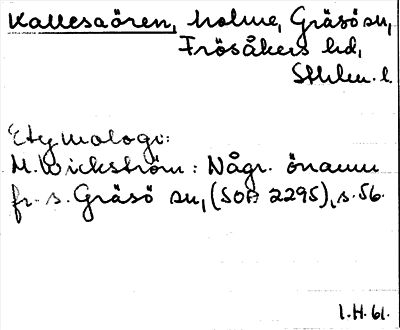 Kallesaören, holme, Gräsö sn,
Frösåkers hd,
Sthlm. l.
Etymologi:
M. Wickström: Någr. önamn
fr. s. Gräsö sn, (SOA 2295), s. 56.
I.H. 61.